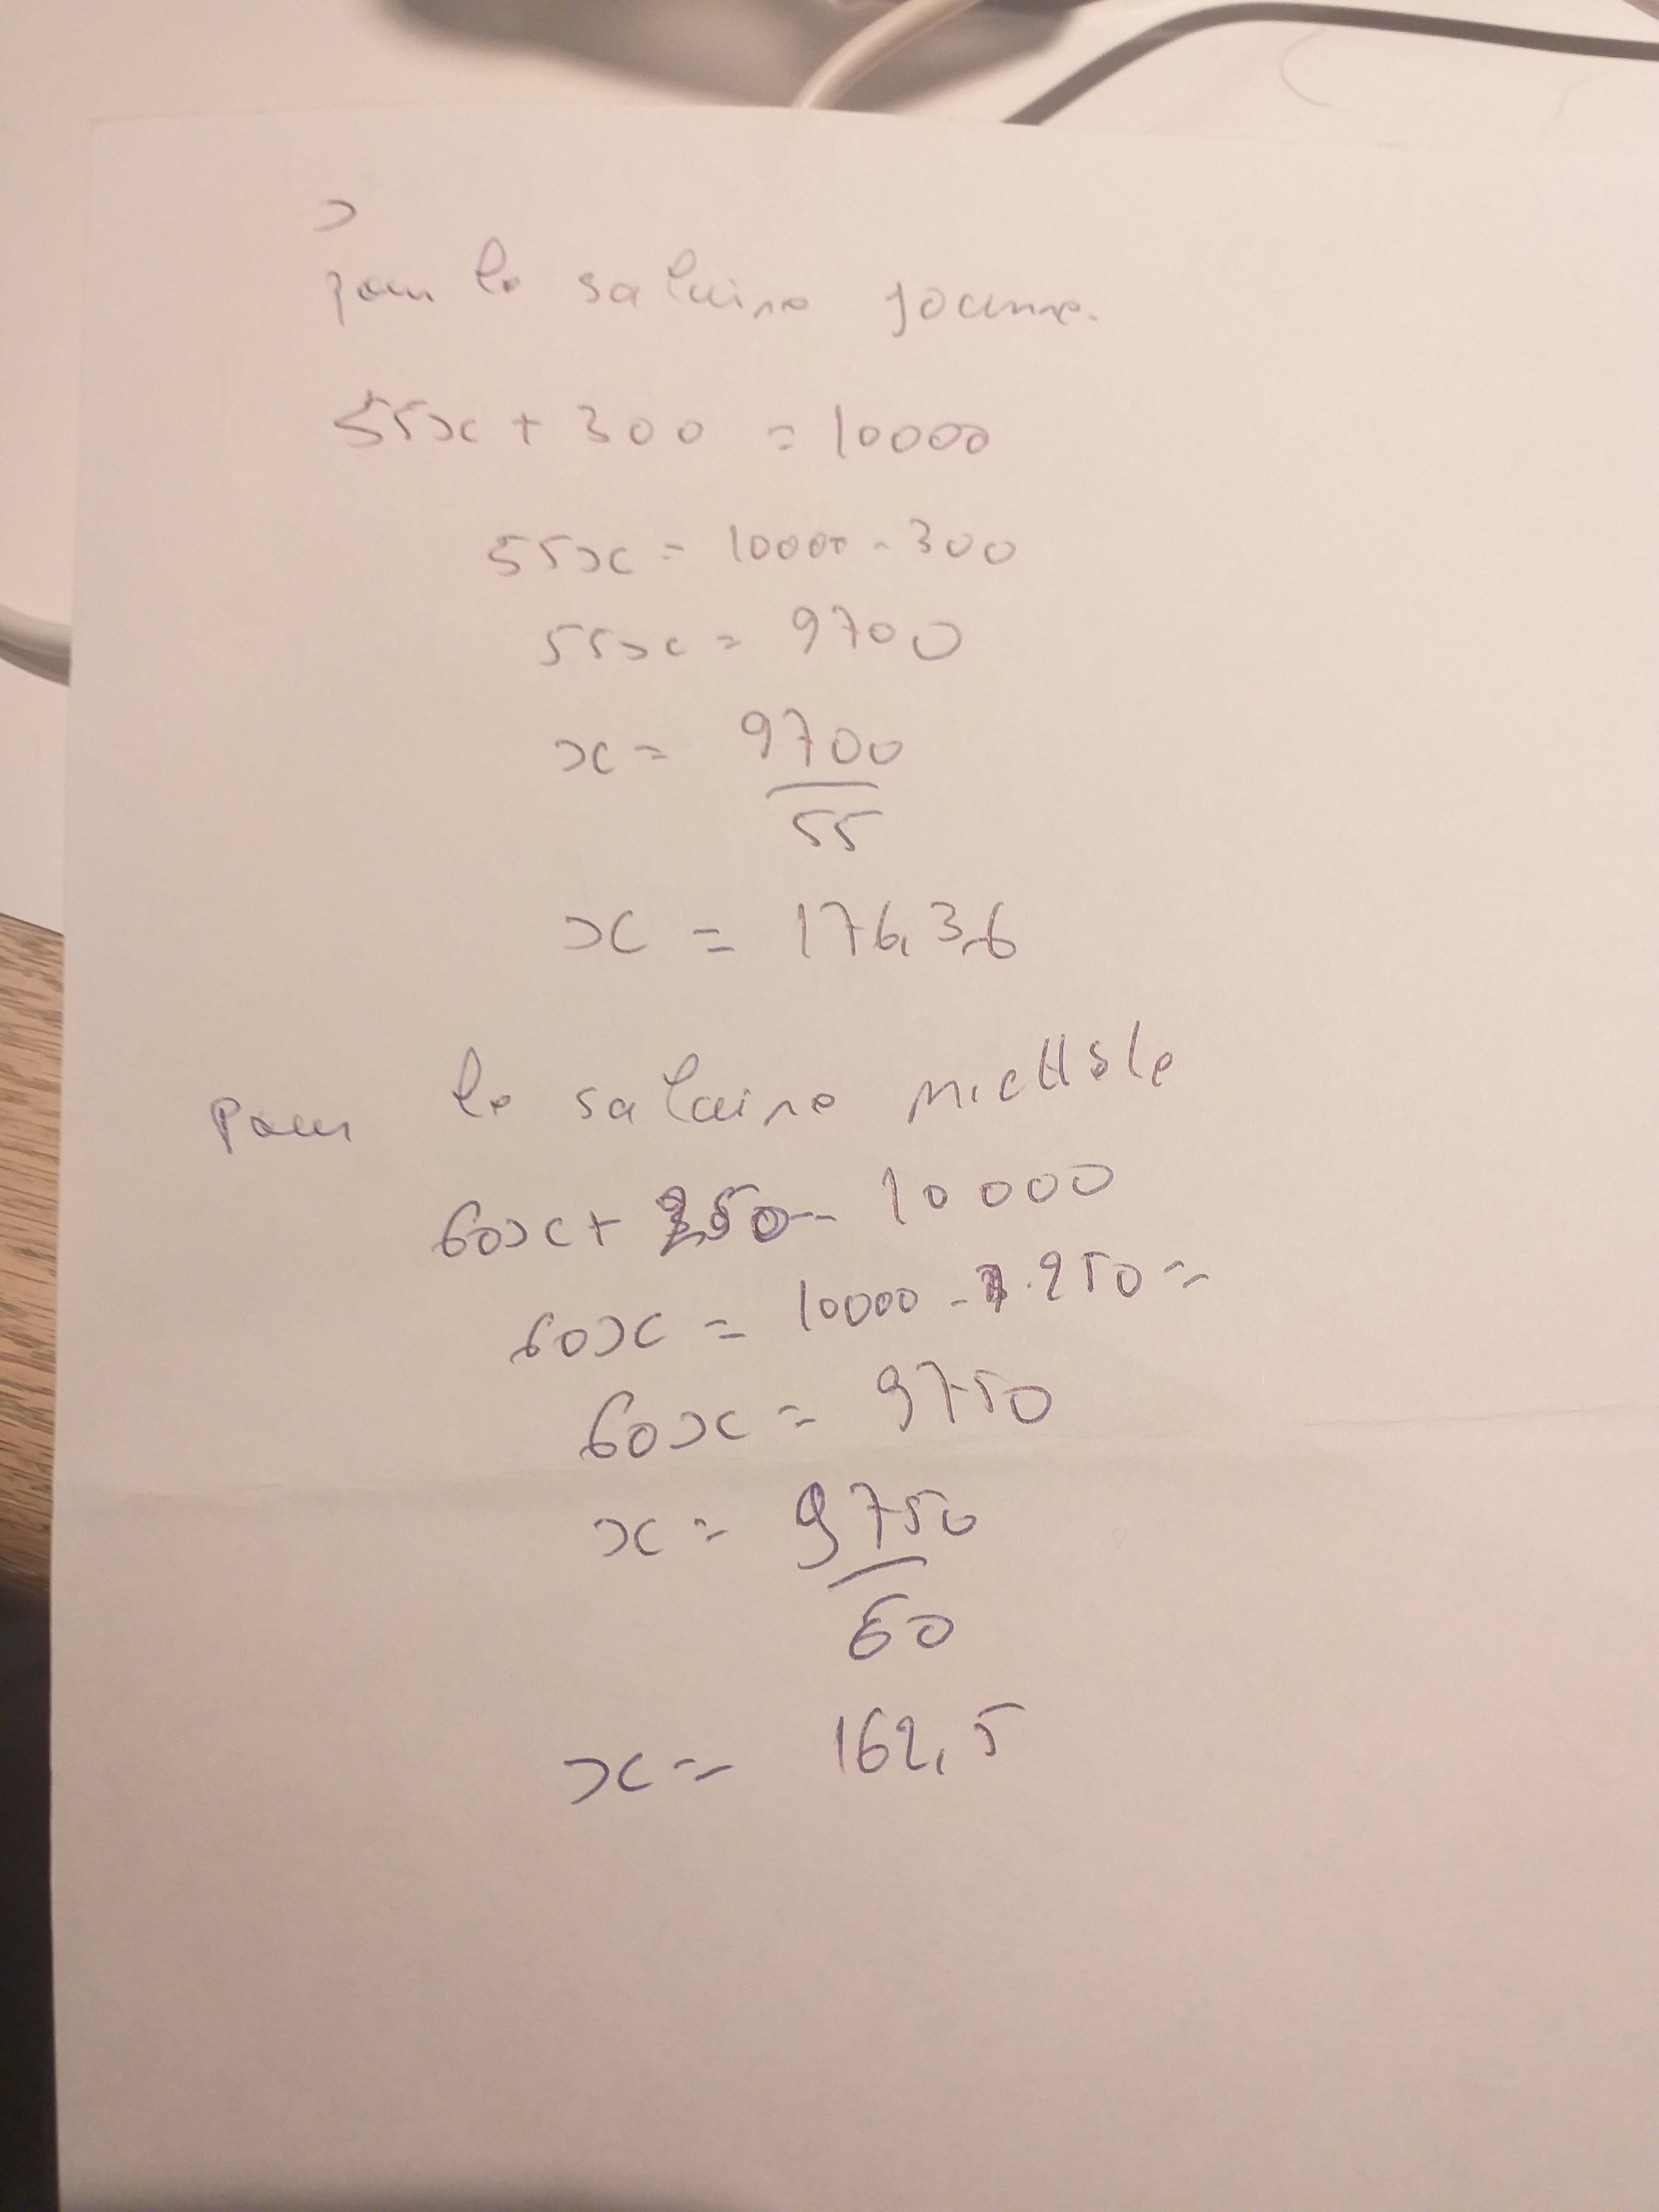 pour le salaire Joanne.
55x + 300 = 10000
55x = 10000 - 300
55x = 9700
x = 9700
55
x = 176,36
Pour le salaire michèle
60x + 250 = 10000
60x = 10000 - 250 =
60x = 9750
x = 9750
60
x = 162,5